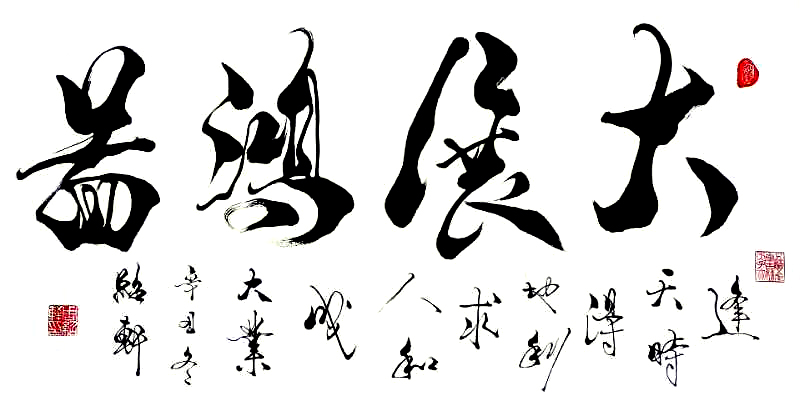 大展鴻圖
逢
天時
得
地利
求
人和
成
大業
辛丑冬
紹軒